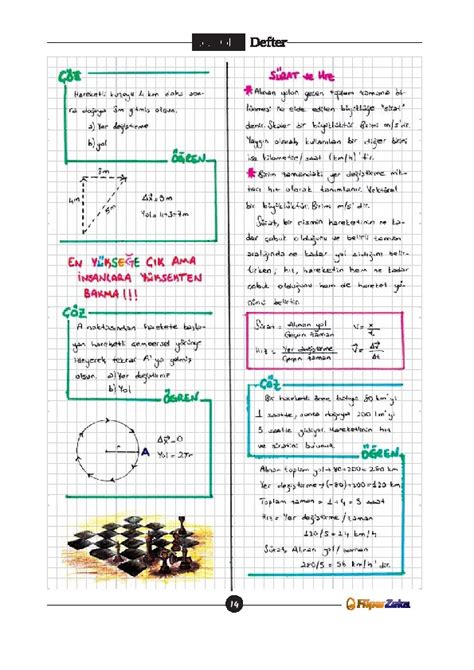 Defter
ÇÖZ
Hareketli kuzeye 4 km daha son-
ra doğuya 3m gitmiş olsun.
a) Yer değiştirme
b) yol
ÖĞREN
3m
4m
5m
Δx = 5m
Yol = 4+3=7m
EN YÜKSEĞE ÇIK AMA
İNSANLARA YÜKSEKTEN
BAKMA!!!
ÇÖZ
A noktasından harekete başla-
yan hareketli çembersel yörünge
izleyerek tekrar A'ya gelmiş
olsun. a) Yer değiştirme
b) Yol
ÖĞREN
r
A
Δx = 0
Yol = 2πr
SÜRAT ve HIZ
* Alınan yolun geçen toplam zamana bö-
lünmesi ile elde edilen büyüklüğe "sürat"
denir. Skaler bir büyüklüktür. Birimi m/s'dir.
Yaygın olarak kullanılan bir diğer birimi
ise kilometre/saat (km/h)'dir.
* Birim zamandaki yer değiştirme mik-
tarı hız olarak tanımlanır. Vektörel
bir büyüklüktür. Birimi m/s'dir.
Sürat, bir cismin hareketinin ne ka-
dar çabuk olduğunu ve belirli zaman
aralığında ne kadar yol aldığını belir-
tirken; hız, hareketin hem ne kadar
çabuk olduğunu hem de hareket yö-
nünü belirtir.
Sürat = Alınan yol / Geçen zaman V = x / t
Hız = Yer değiştirme / Geçen zaman V = Δx / Δt
ÇÖZ
Bir hareketli önce batıya 80 km'yi
1 saatte, sonra doğuya 200 km'yi
5 saatte gidiyor. Hareketlinin hız
ve süratini bulunuz.
ÖĞREN
Alınan toplam yol → 80+200 = 280 km
Yer değiştirme → (-80)+200 = 120 km
Toplam zaman = 1+4 = 5 saat
Hız = Yer değiştirme / zaman
120/5 = 24 km/h
Sürat, Alınan yol/zaman
280/5 = 56 km/h'dir.
14
HiperZeka